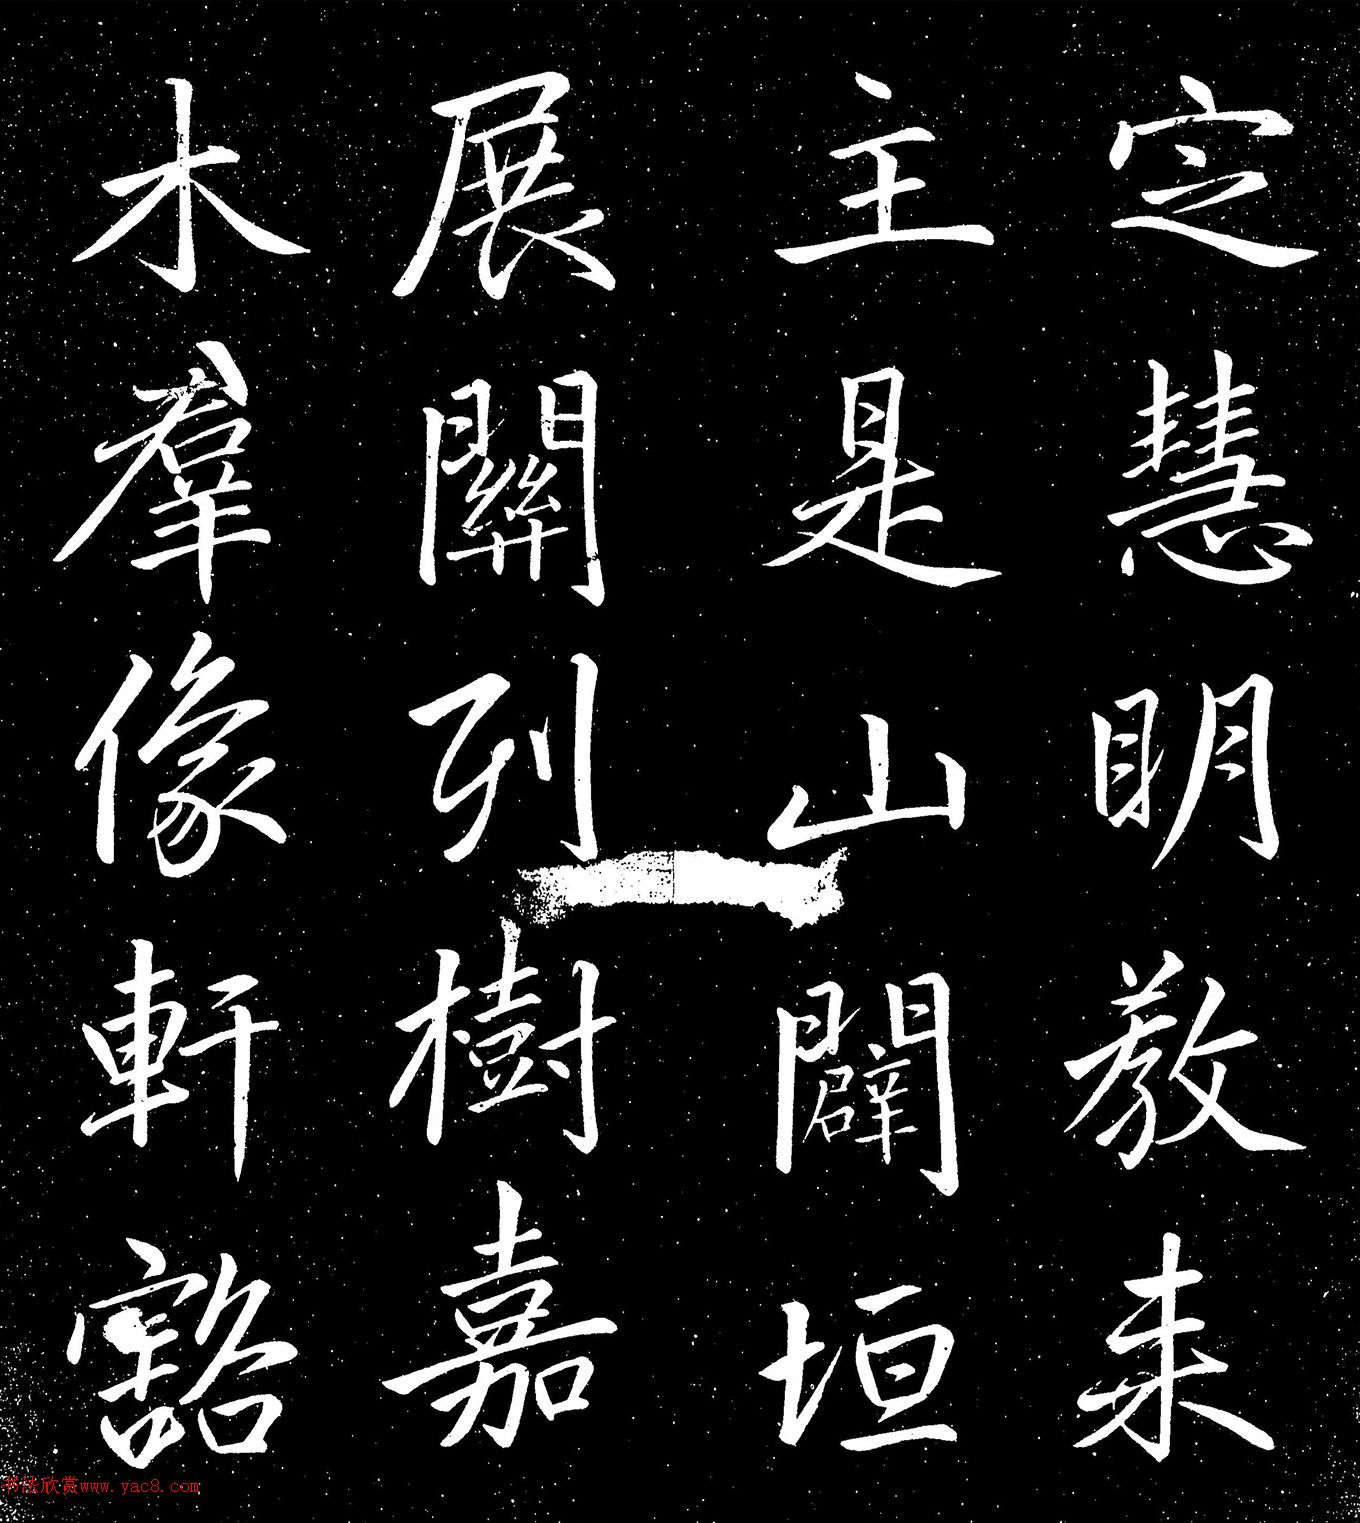 定慧明教来
主是山闢垣
展關列樹嘉
木羣像軒豁
书法欣赏www.yac8.com